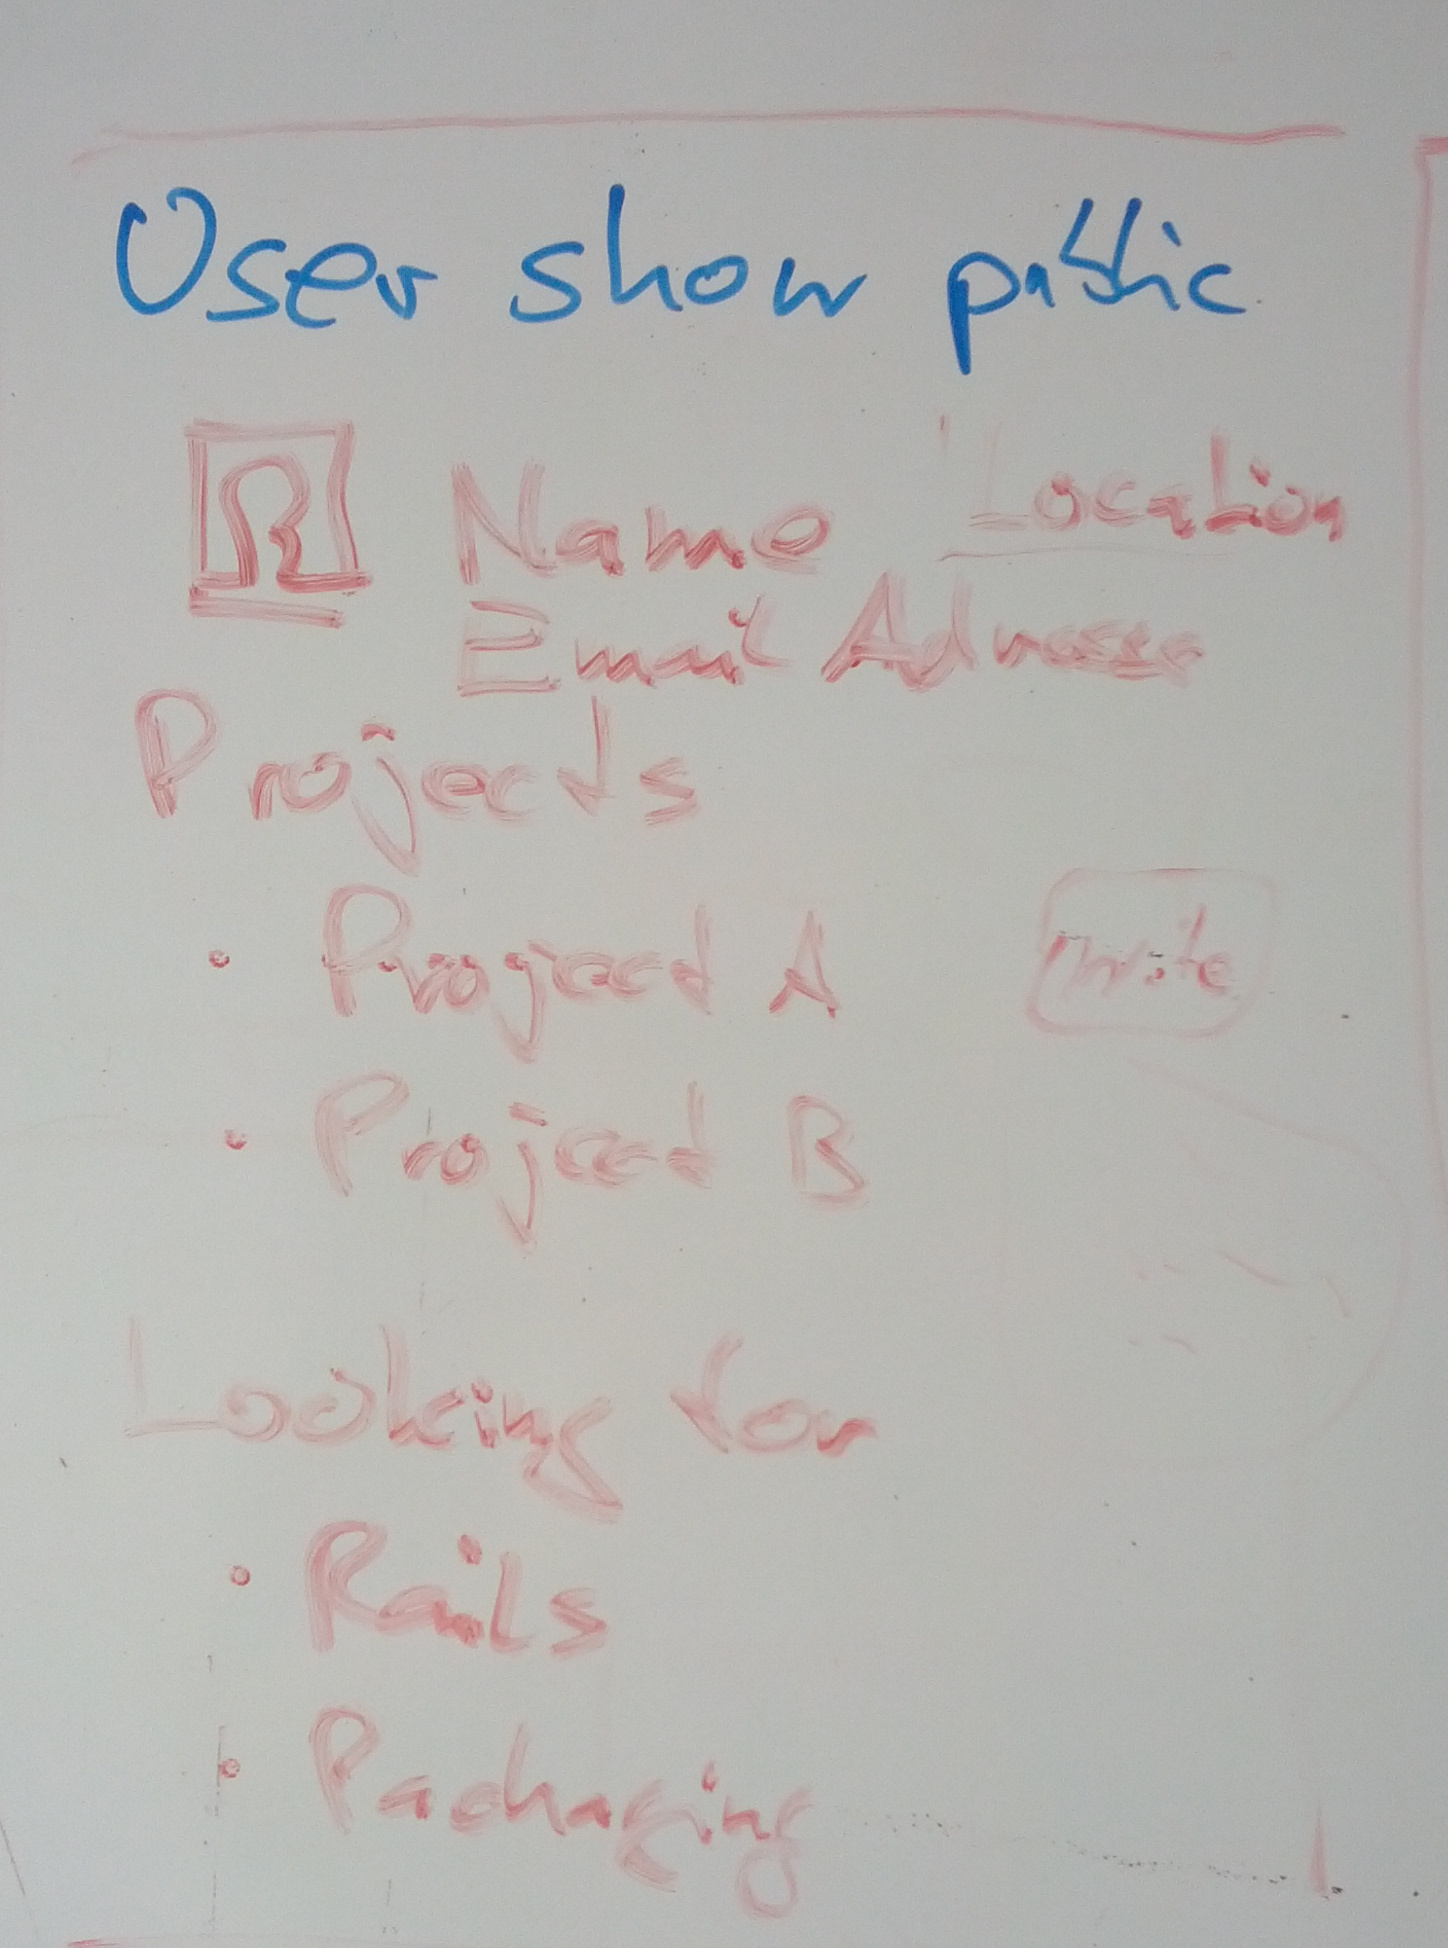 User show public
Name Location
Email Adresse
Projects
• Project A invite
• Project B
Looking for
• Rails
• Packaging